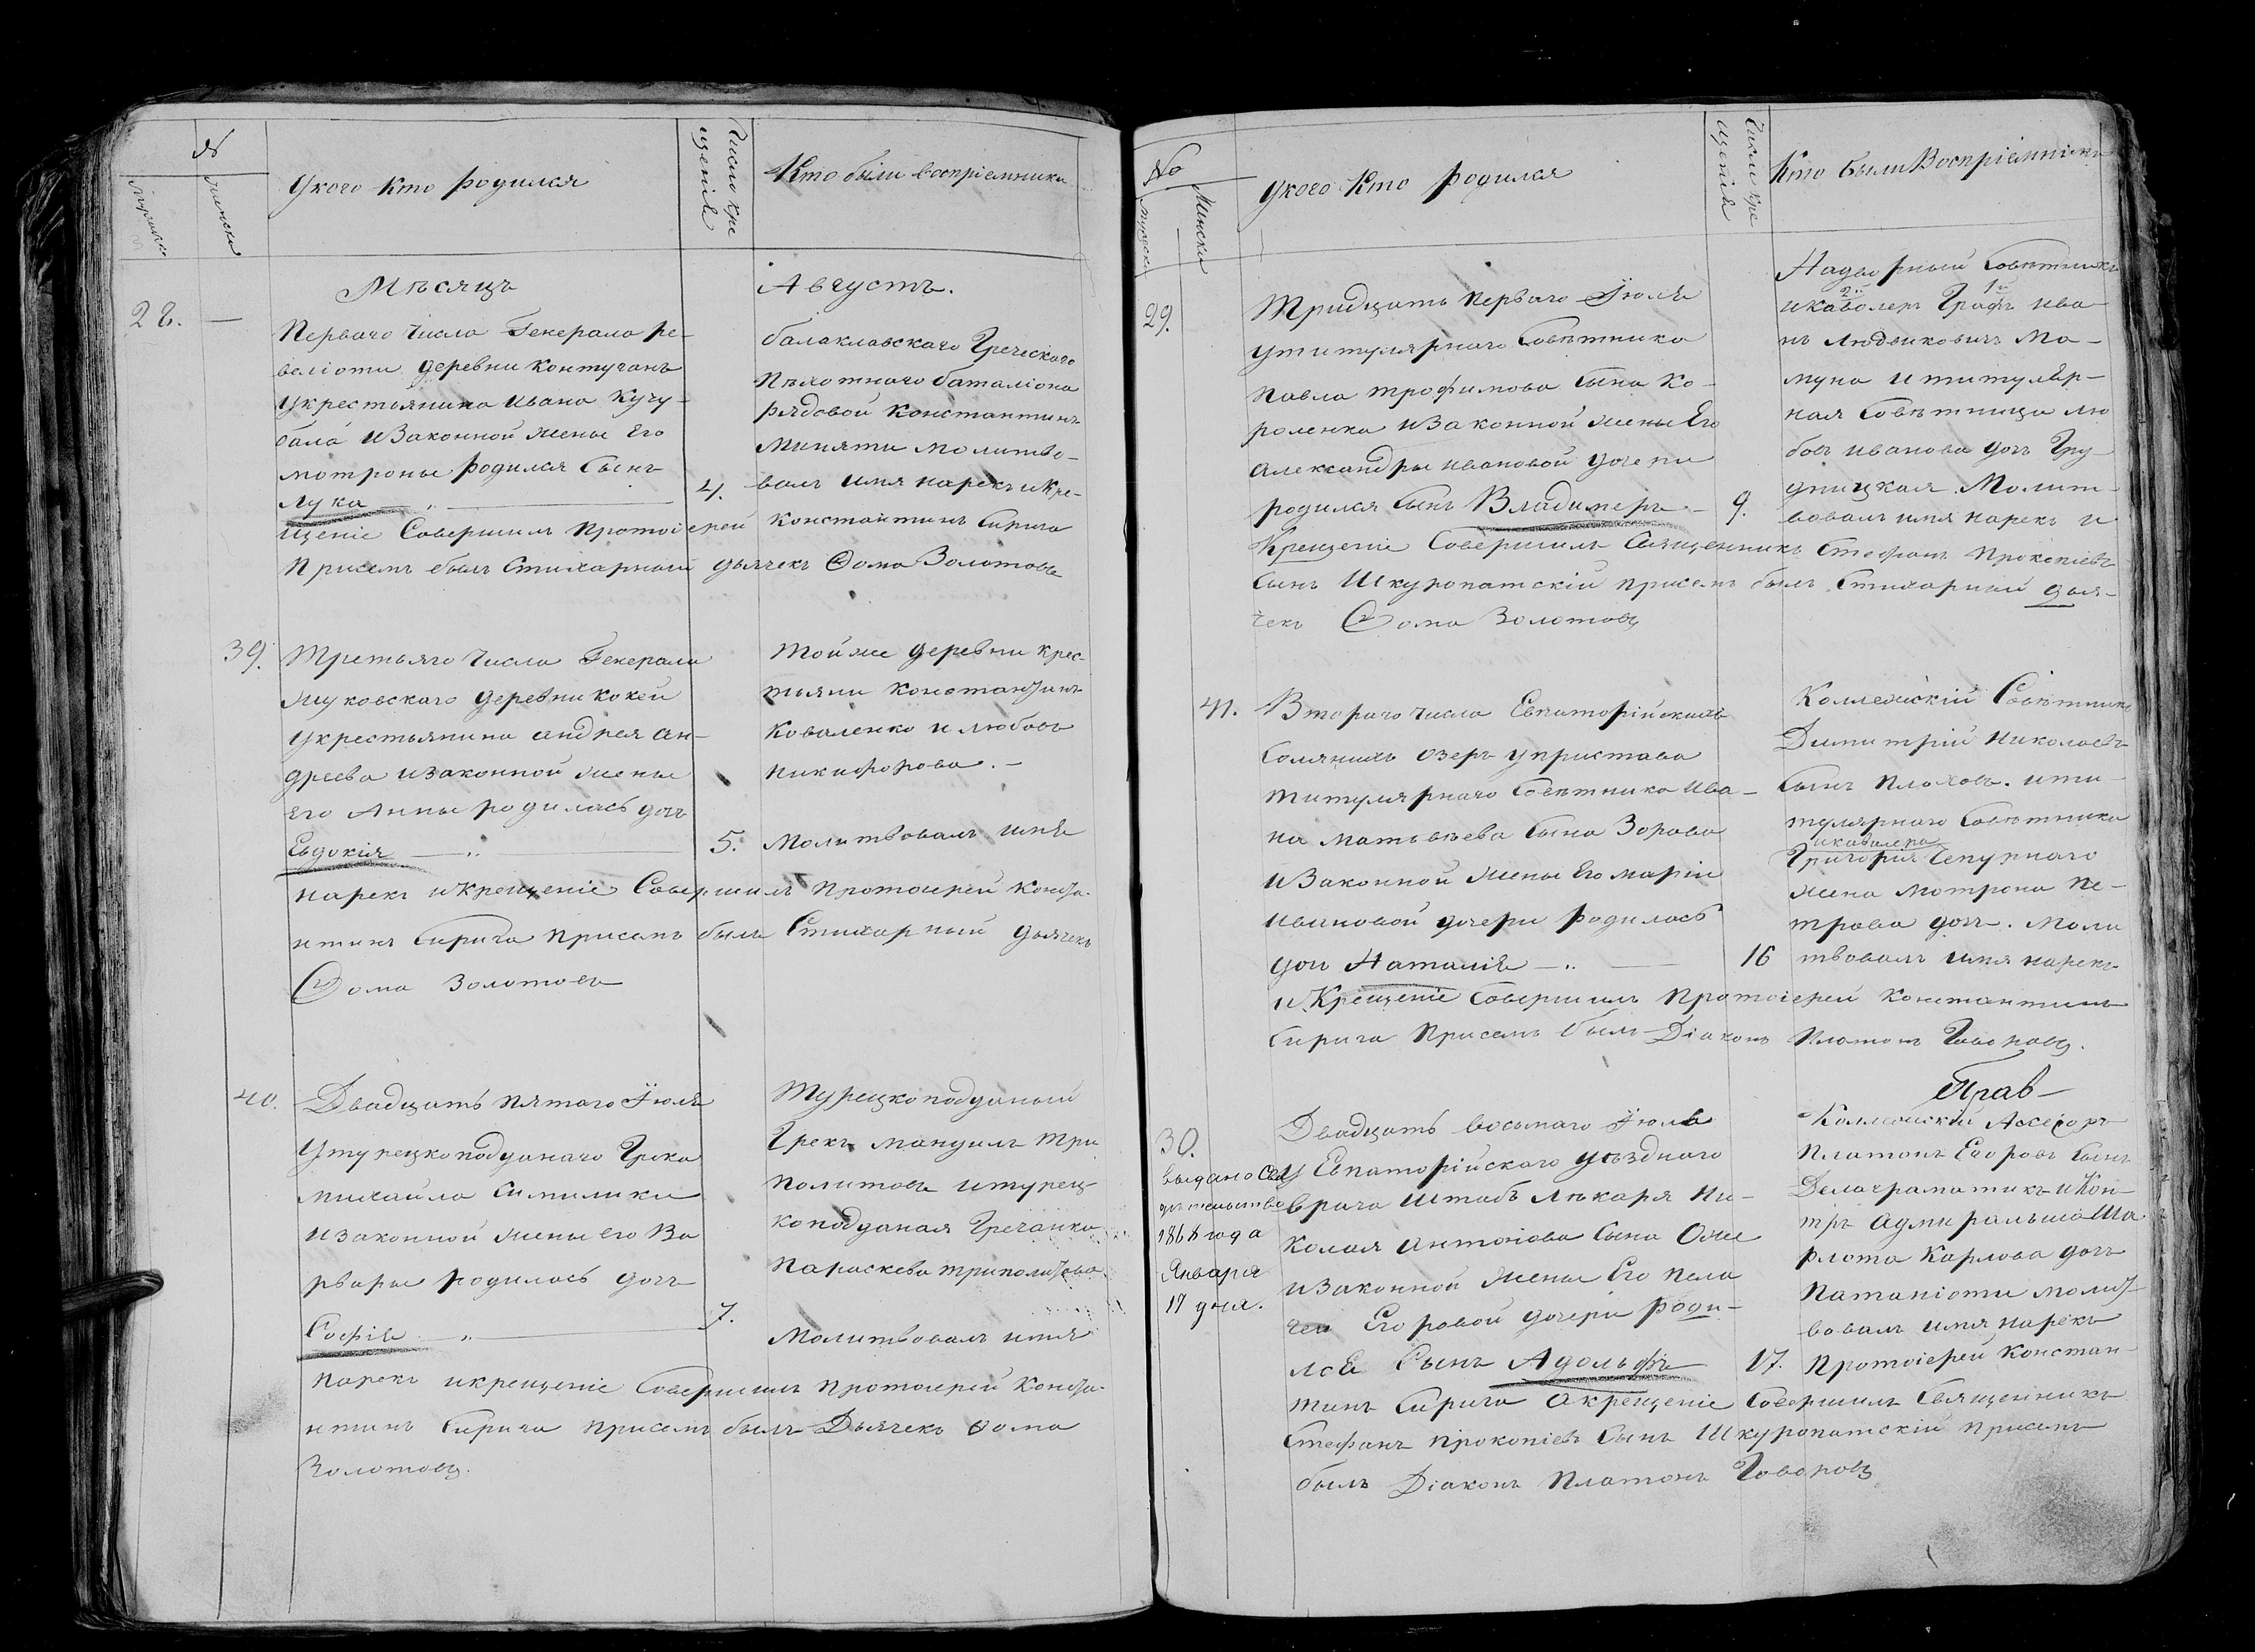 №
Мужски
Женски
У кого кто родился
Число кре
щенія
Кто были воспріемники
Мѣсяцъ
Августъ.
28.
Перваго числа Генерала ре-
веліоти деревни Контуганъ
у крестьянина Ивана Кучу-
бала и законной жены его
мотроны родился сынъ
Лука
4.
балаклавскаго Греческаго
пѣхотнаго баталіона
рядовой Константинъ
Миняти молитво-
валъ имя нарекъ и кре-
щеніе Совершилъ Протоіерей Константинъ Спирига
Присемъ былъ Стихарный дьячекъ Ѳома Золотовъ
39.
Третьяго числа Генерала
Жуковскаго деревни Кокей
у крестьянина андрея ан-
дреева и законной жены
его Анны родилась дочь
Евдокія
5.
Той же деревни крес-
тьяни Константинъ
Коваленко и любовь
никифорова.
Молитвовалъ имя
нарекъ и крещеніе Совершилъ Протоіерей Конста-
нтинъ Спирига присемъ былъ Стихарный дьячекъ
Ѳома Золотовъ
40.
Двадцать пятаго Іюля
у турецкоподданаго Грека
михайла Симилики
и законной жены его Ва
рвары родилась дочь
Софія
7.
Турецкоподданый
Грекъ мануилъ Три
политовъ и турец-
коподданая Гречанка
Параскева триполитова
Молитвовалъ имя
нарекъ и крещеніе Совершилъ Протоіерей Конста-
нтинъ Спирига присемъ былъ Дьячекъ Ѳома
Золотовъ.
№
Мужски
Женски
У кого кто родился
Число кре
щенія
Кто были Воспріемники
29.
Тридцать перваго Іюля
у титулярнаго Совѣтника
Павла трофимова сына Ко-
роленка и законной жены Его
Александры ивановой дочери
родился сынъ Владимеръ
9.
Надворный Совѣтникъ
и каволеръ Графъ ива-
нъ Людвиковичъ Мо-
муна и титуляр-
ная Совѣтница лю
бовь иванова дочь Гру-
дницкая. Молит-
вовалъ имя нарекъ и
Крещеніе Совершилъ Священникъ Стефанъ Прокопіевъ
сынъ Шкуропатскій присемъ былъ Стихарный дья-
чекъ Ѳома Золотовъ
41.
Втораго числа Евпаторійскихъ
Соляныхъ озеръ у пристава
титулярнаго Совѣтника Ива-
на матвѣева сына Зорова
и Законной жены Его маріи
ивановой дочери родилась
дочь Наталія
16
Коллежскій Совѣтникъ
Димитрій Николаевъ
сынъ Плоховъ. и ти-
тулярнаго Совѣтника
и кавалера
Григорія Чепурнаго
жена мотрона пе-
трова дочь. Моли
твовалъ имя нарекъ
и Крещеніе Совершилъ Протоіерей Константинъ
Спирига Присемъ былъ Діаконъ Платонъ Говоровъ.
30.
выдано Сви
детельство
1868 года
Января
17 дня.
Двадцать восьмаго Іюля
у Евпаторійскаго уѣзднаго
врача Штабъ Лѣкаря Ни-
колая Антонова сына Оже
и законной жены Его Пела
геи Егоровой дочери роди-
лся Сынъ Адольфъ
17.
Прав-
Коллежскій Асесоръ
Платонъ Егоровъ сынъ
Делаграматикъ и Кон-
тръ адмиральша Ша
рлота Карлова дочь
Патаніоти молит-
вовалъ имя нарекъ
Протоіерей Констан-
тинъ Спирига а крещеніе Совершилъ Священникъ
Стефанъ прокопіевъ Сынъ Шкуропатскій Присемъ
былъ Діаконъ Платонъ Говоровъ